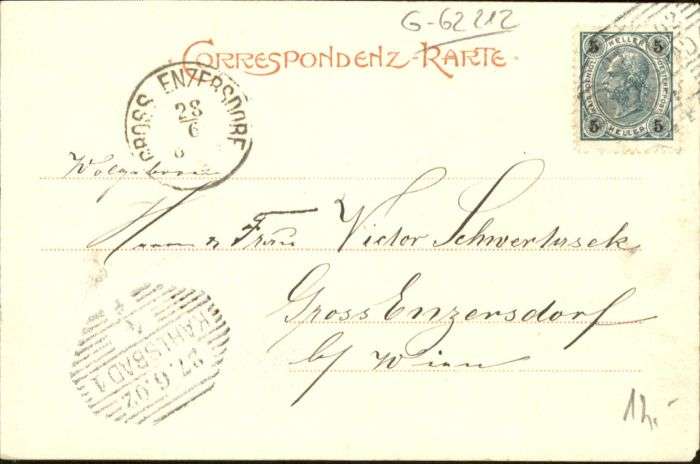 G-62212
CORRESPONDENZ-KARTE
5 HELLER 5
5 HELLER 5
GROSS ENZERSDORF
28
6
Herrn & Frau Victor Schwertasek
Gross Enzersdorf
b/ Wien
KARLSBAD 1
27.6.02
12,-